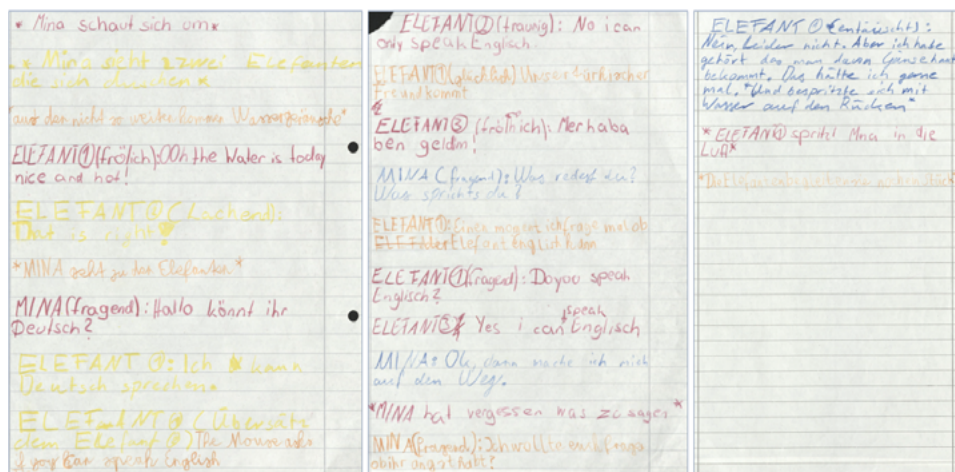 * Mina schaut sich um *
* Mina sieht zwei Elefanten
die sich duschen *
nicht so weiter
ELEFANT①(frölich):Ooh the Water is today
nice and hot!
ELEFANT②(Lachend):
That is right!
*MINA geht zu den Elefanten*
MINA(fragend): Hallo könnt ihr
Deutsch?
ELEFANT②: Ich kann
Deutsch sprechen.
ELEFANT②(Übersätz
dem Elefant①) The Mouse asks
speak English
ELEFANT①(traurig): No i can
only speak Englisch.
ELEFANT①(glücklich) Unser türkischer
Freund kommt
ELEFANT③(frölich): Merhaba
ben geldim!
MINA(fragend): Was redest du?
Was sprichts du?
ELEFANT①: Einen moment ich frage mal ob
der Elefant Englisch kann
ELEFANT①(fragend): Do you speak
Englisch?
ELEFANT③ Yes i can speak Englisch
MINA: Ok, dann mache ich mich
auf den Weg.
*MINA hat vergessen was zu sagen*
MINA(fragend): Ich wollte euch fragen
ob ihr angst habt?
ELEFANT①(entäuscht):
Nein, leider nicht. Aber ich habe
gehört das man davon Gänsehaut
bekommt. Das hätte ich gerne
mal. *Und bespritzte sich mit
Wasser auf den Rücken*
*ELEFANT① spritzt Mina in die
Luft*